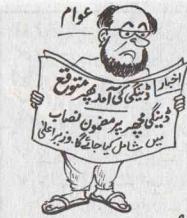 عوام
اخبار
ڈینگی کی آمد پھر متوقع
ڈینگی مچھر پر مضمون نصاب
میں شامل کیا جائے گا۔ وزیر اعلیٰ